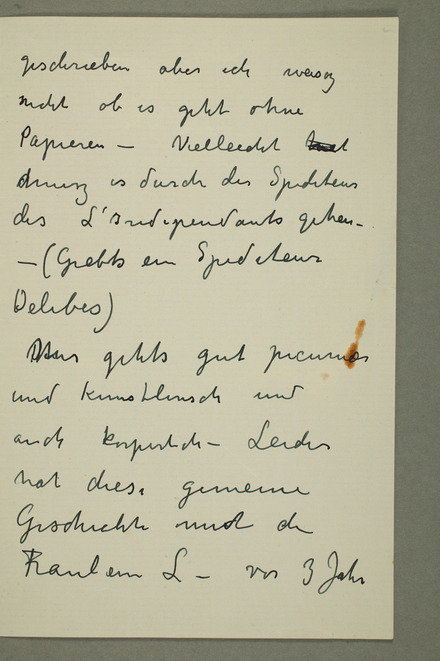 geschrieben aber ich weisz
nicht ob es geht ohne
Papieren — Vielleicht
musz es durch des Spediteurs
des L'Independants gehen—
—(Giebts ein Spediteur
Delibes)
Mir gehts gut pecuniär
und künstlerisch und
auch körperlich — Leider
hat diese gemeine
Geschichte mit der
Fraulein L — vor 3 Jahr